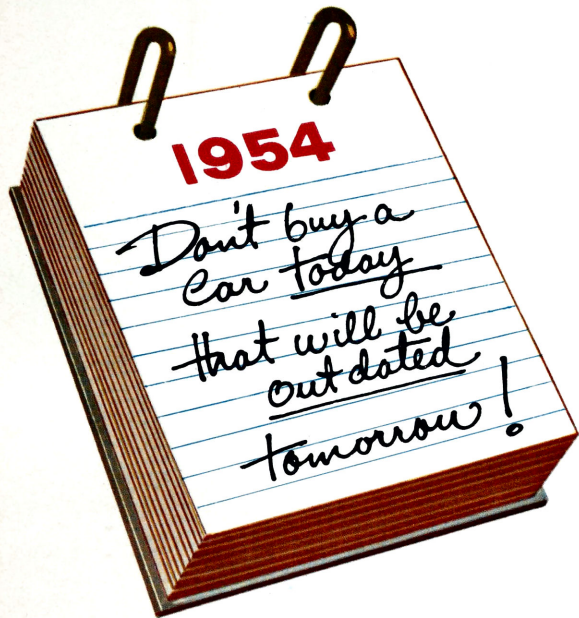 1954
Don't buy a
Car today
that will be
outdated
tomorrow!